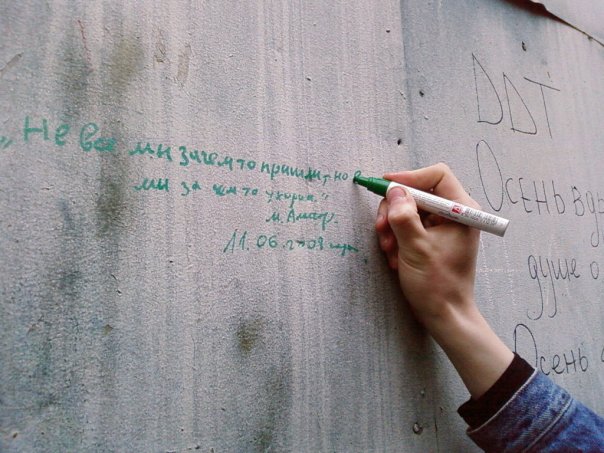 „Не все мы зачем то пришли, но
мы за чем то уходим."
11.06.2008
DDT
Осень
душе о
Осень